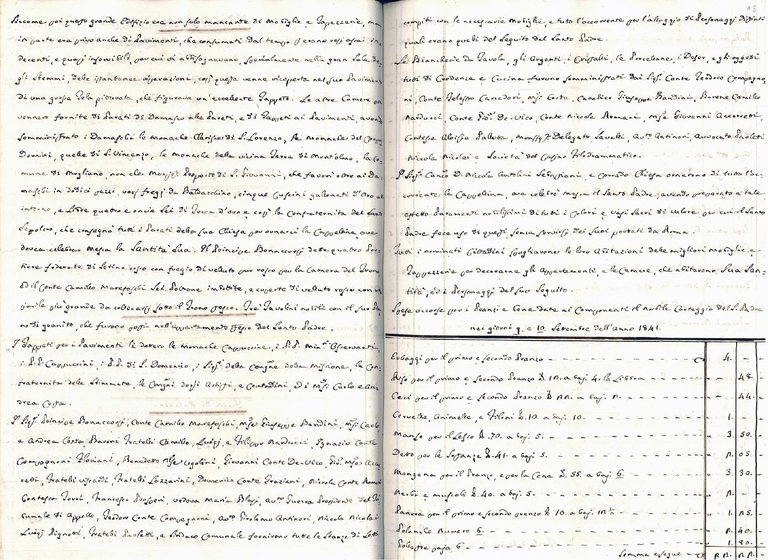 Siccome poi questo grande Edifizio era non solo mancante di Mobiglie e Tapezzerie, ma
in parte era privo anche di Pavimenti, che consumati dal tempo si erano resi ormai in-
decenti, e quasi inservibili, per cui abbisognavano, specialmente nella gran Sala de-
gli Stemmi, delle istantanee riparazioni, così questa venne ricoperta nel suo Pavimento
di una grossa Tela pitturata, che figurava un'eccellente Tappeto. Le altre Camere poi
vennero fornite di Parati di Damasco alle Pareti, e di Tappeti ai Pavimenti, avendo
somministrato i Damaschi le Monache Clarisse di S. Lorenzo, le Monache del Corpus
Domini, quelle di S. Vincenzo, le Monache della vicina Terra di Montolmo, la Co-
mune di Mogliano, non che Monsig.r Preposto di S. Giovanni, che favorì oltre ai Da-
maschi in dodici pezzi, varj fregi da Baldacchino, cinque Cuscini gallonati d'Oro al-
intorno, e altre quattro e oncie Sei di Tocca d'oro e così la Confraternita del Santo
Sepolcro, che consegnò tutti i Parati della sua Chiesa per ornarci la Cappellina, ove
doveva celebrare Messa la Santità Sua. Il Principe Bonaccorsi dette quattro Por-
tiere foderate di Setino rosso con fregio di velluto pur rosso per la Camera del Trono,
ed il Conte Camillo Marefoschi Sei Poltrone imbottite, e coperte di velluto rosso con
simile più grande da collocarsi sotto il Trono stesso. Tre Tavolini nobili con il suo Pia-
no di granito, che furono posti nell'Appartamento stesso del Santo Padre.
I Tappeti per i Pavimenti li dettero le Monache Cappuccine, i P.P. Min.i Osservanti,
i P.P. Cappuccini, i P.P. di S. Domenico, i Sig.i della Congr.ne della Missione, la Con-
fraternita delle Stimmate, le Congr.ni degli Artisti, e Contadini, ed i M.si Carlo e An-
drea Costa.
I Sig.i Principe Bonaccorsi, Conte Camillo Marefoschi, M.se Giuseppe Bandini, M.si Carlo
e Andrea Costa, Baroni Fratelli Camillo, Luigi, e Filippo Narducci, Ignazio Conte
Compagnoni Floriani, Benedetto M.se Ugolini, Giovanni Conte De-Vico, Gio. M.se Ac-
cretti, Fratelli Lazzarini, Domenico Conte Graziani, Nicola Conte Romani
Francesco Prosperi, vedova Maria Blasi, Avv.o Guerra Presidente del Tri-
bunale di Appello, Teodoro Conte Compagnoni, Avv.o Girolamo Antinori, Nicola Nicolai
Luigi Pignotti, Fratelli Paoletti, e Palazzo Comunale fornirono tutte le Stanze di Letti
18
completi con le necessarie Mobiglie, e tutto l'occorrente per l'alloggio di Personaggi distinti
quali erano quelli del Seguito del Santo Padre.
Le Biancherie da Tavola, gli Argenti, i Cristalli, le Porcellane, i Deser, e gli oggetti
tutti di Credenza e Cucina furono somministrati dai Sig.i Conte Teodoro Compagno-
ni, Conte Telesforo Carradori, M.si Costa, Cavaliere Giuseppe Bandini, Barone Camillo
Narducci, Conte Gio. De-Vico, Conte Nicola Romani, M.se Giovanni Accorretti,
Contessa Aloisia Pallotta, Monsig.r Delegato Savelli, Avv.o Antinori, Avvocato Paoletti
Nicola Nicolai e Società del Casino Filodrammatico.
I Sig.i Can.ci D. Nicola Antolini Selvaggiani, e Corrado Chiesa ornarono di tutto l'oc-
corrente la Cappellina, ove celebrò messa il Santo Padre, avendo preparato a tale
effetto Paramenti nobilissimi di tutti i Colori e Vasi Sacri di valore, per cui il Santo
Padre fece uso di questi senza servirsi dei suoi portati da Roma.
Tutti i nominati Cittadini spogliarono le loro abitazioni delle migliori Mobiglie, e
Tappezzerie per decorarne gli Appartamenti, e le Camere, che abitarono Sua San-
tità, ed i Personaggi del Suo Seguito.
Spese occorse per i Pranzi e Cene date ai Componenti il nobile Corteggio del S. Padre
nei giorni 9. e 10. Settembre dell'anno 1841.
Erbaggi per il primo e secondo Pranzo 4. -
Riso per il primo e secondo Pranzo a baj. 4. la Libbra - 48.
Ceci per il primo e secondo Pranzo - 44.
Cervella, Animelle, e Filoni P. 10. a baj. 10. 1. -
Manzo per il Lesso P. 70. a baj. 5. 3. 50.
Detto per le Sostanze P. 41. a baj. 5. 2. 05.
Mongana per il Pranzo, e per la Cena P. 55. a baj. 6. 3. 30.
P. 40. a baj. 5. 2. -
Panera per il primo e secondo pranzo
Pollanche Numero 6.
Pollastri paja 6.
Somma e segue